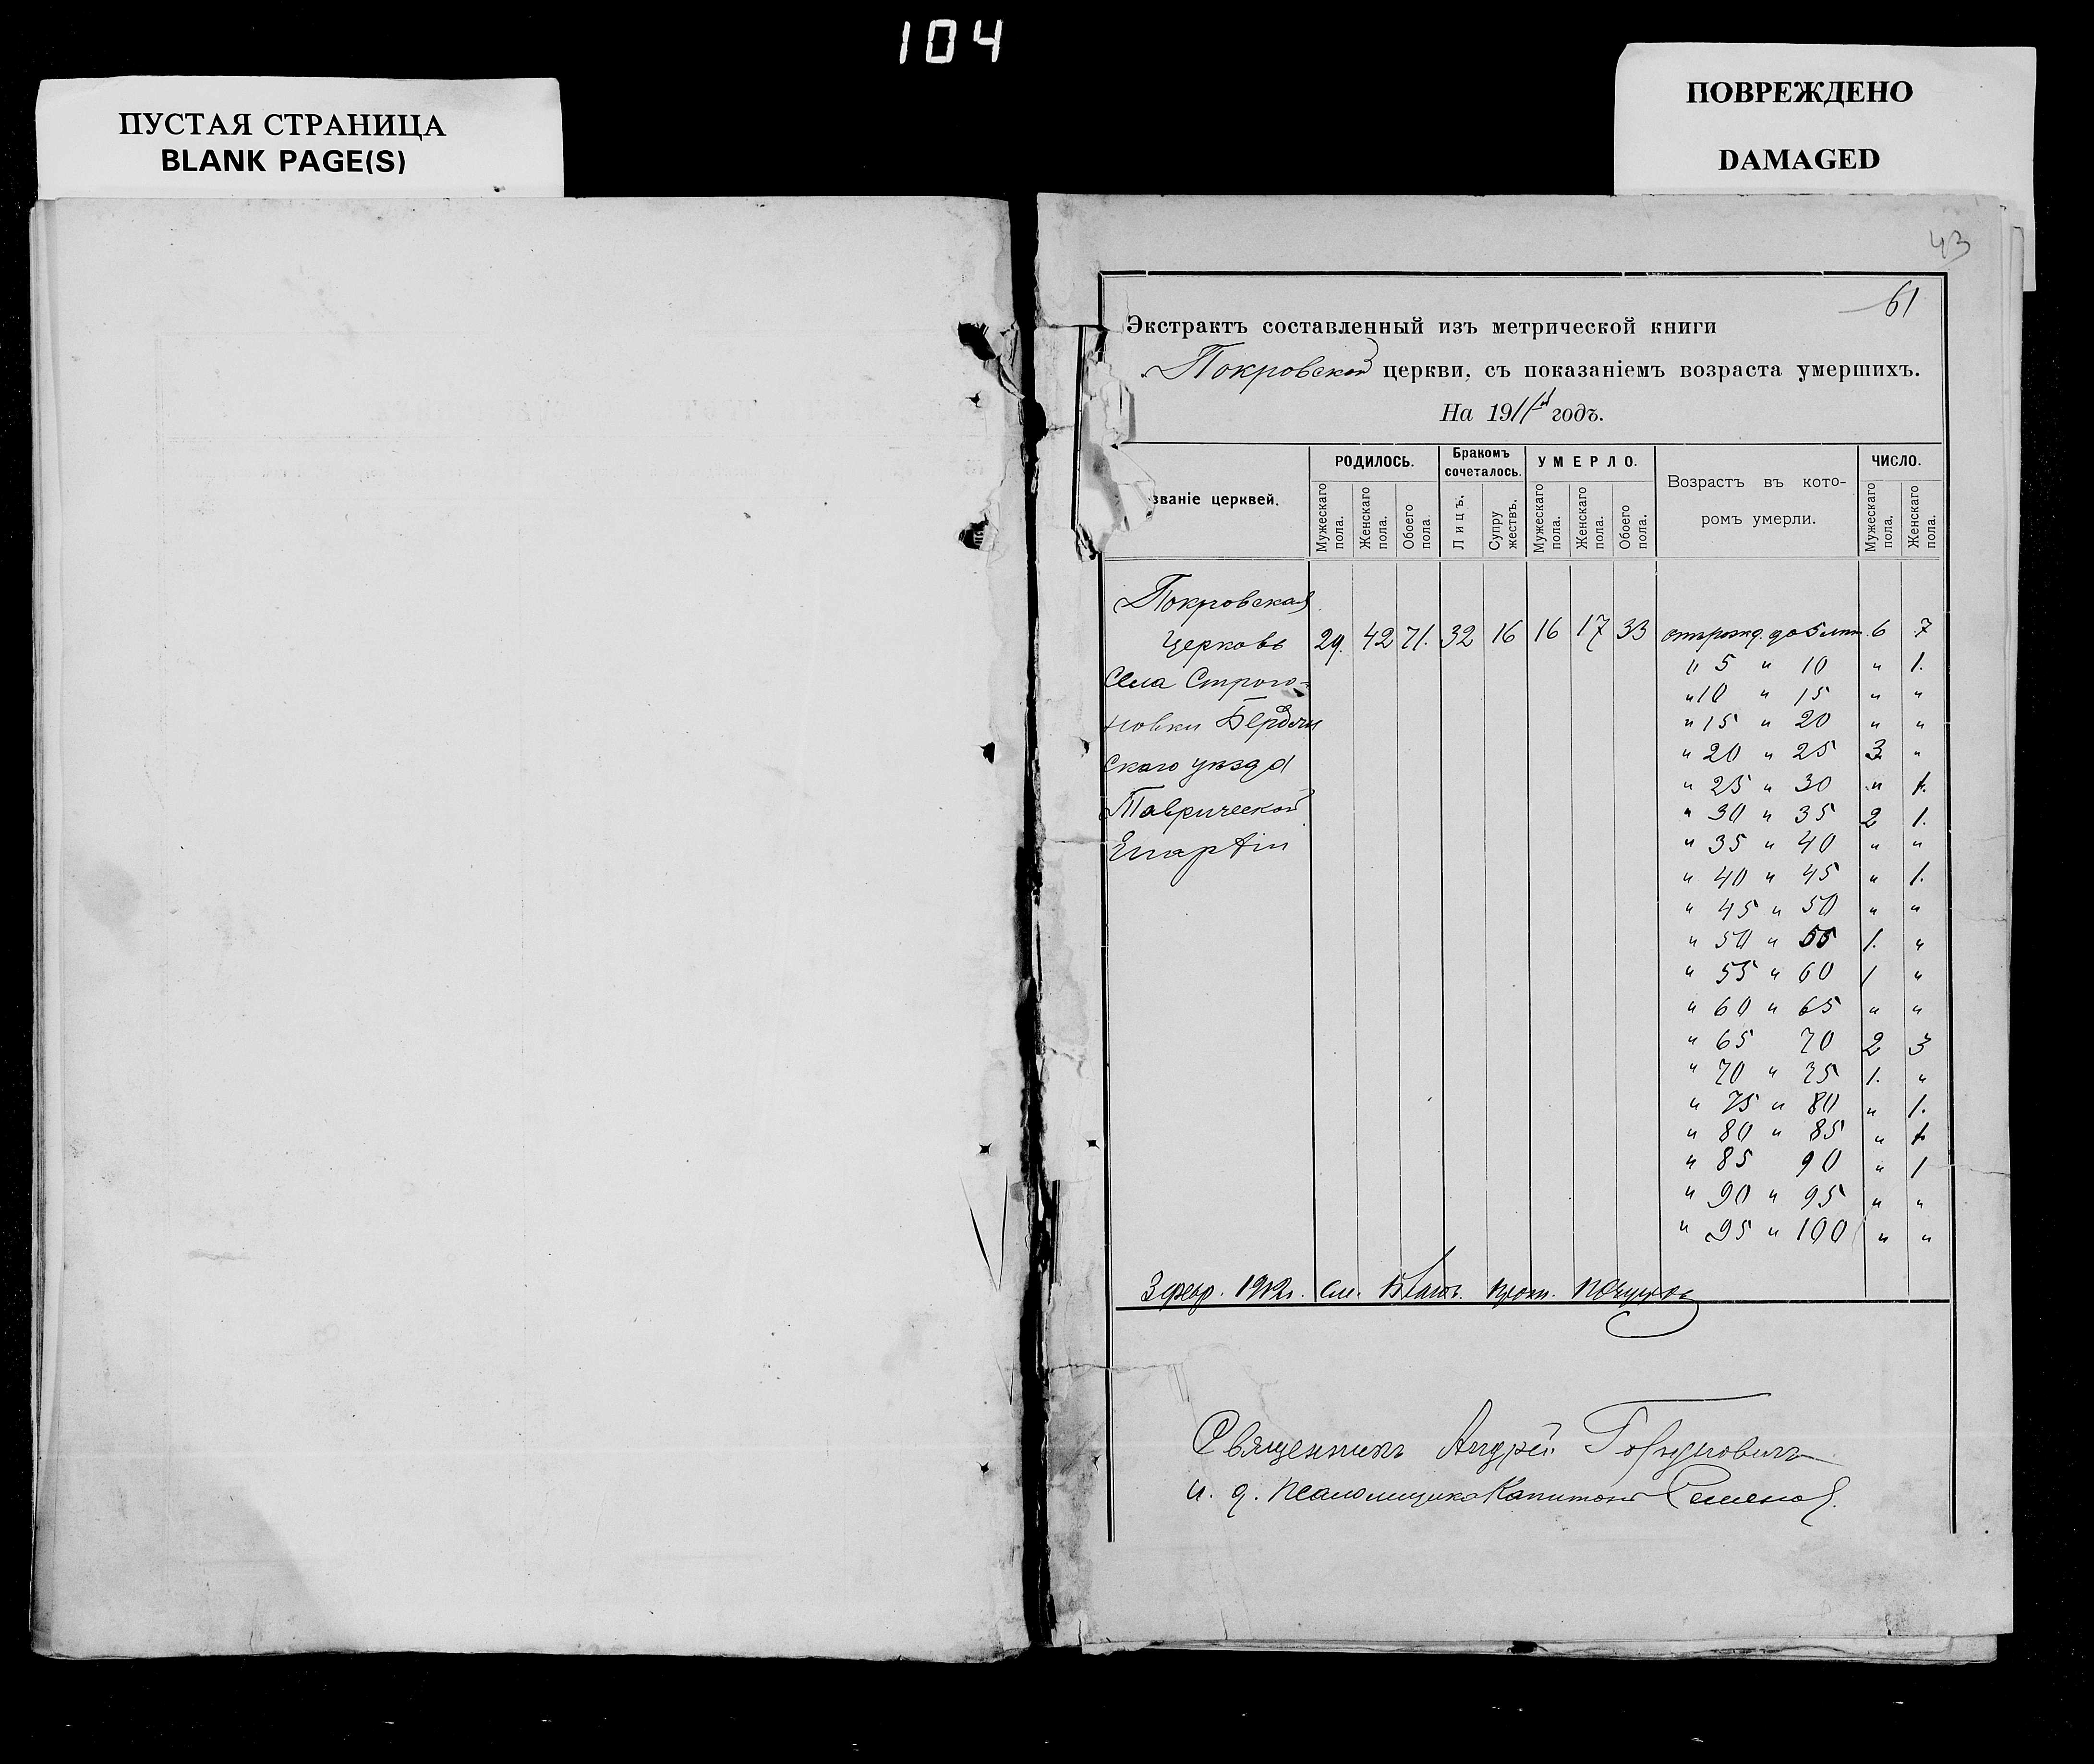 104
ПУСТАЯ СТРАНИЦА
BLANK PAGE(S)
ПОВРЕЖДЕНО
DAMAGED
43
61
Экстрактъ составленный изъ метрической книги
Покровской церкви, съ показаніемъ возраста умершихъ.
На 1911й годъ.
званіе церквей.
РОДИЛОСЬ.
Мужескаго пола.
Женскаго пола.
Обоего пола.
Бракомъ сочеталось.
Лицъ.
Супружествъ.
УМЕРЛО.
Мужескаго пола.
Женскаго пола.
Обоего пола.
Возрастъ въ кото-
ромъ умерли.
ЧИСЛО.
Мужескаго пола.
Женскаго пола.
Покровская
Церковь 29. 42 71. 32 16 16 17 33 отъ рожд. до 5 лѣт. 6 7
Села Строго-
новки Бердян
скаго уѣзда
Таврической
Епархіи
" 5 " 10 " 1.
" 10 " 15 " "
" 15 " 20 " "
" 20 " 25 3 "
" 25 " 30 " 1.
" 30 " 35 2 1.
" 35 " 40 " "
" 40 " 45 " 1.
" 45 " 50 " "
" 50 " 55 1. "
" 55 " 60 1 "
" 60 " 65 " "
" 65 70 2 3
" 70 " 75 1. "
" 75 " 80 " 1.
" 80 " 85 " 1
" 85 90 " 1
" 90 " 95 " "
" 95 " 100 " "
3 февр. 1912г.
Священникъ Андрей
и. д. псаломщика Капитонъ Семенов.